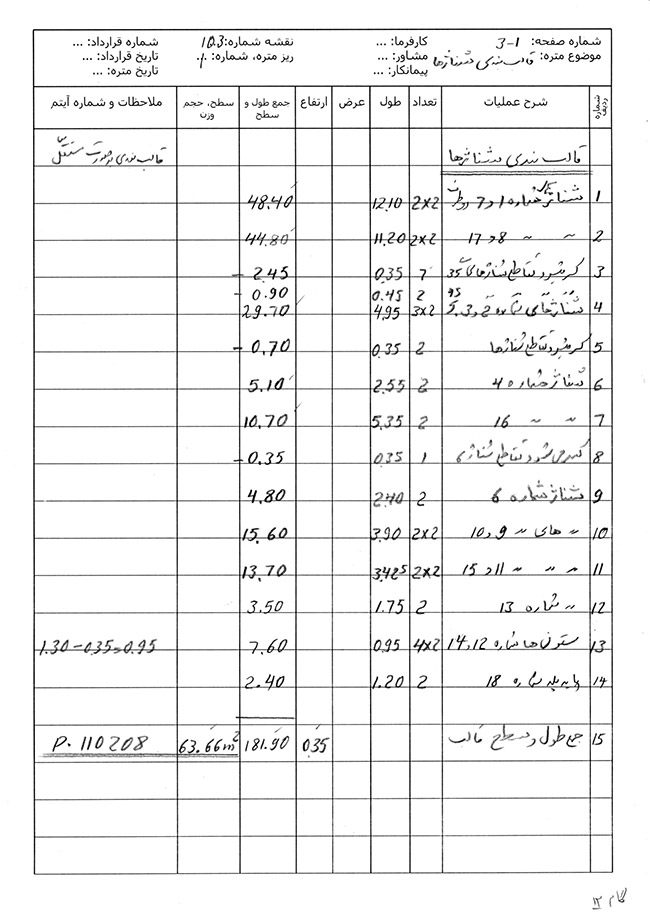 شماره صفحه: 3-1
کارفرما: ...
نقشه شماره: 103
شماره قرارداد: ...
موضوع متره: قالب بندی شناژها
مشاور: ...
ریز متره، شماره: 1
تاریخ قرارداد: ...
پیمانکار: ...
تاریخ متره: ...
شماره ردیف شرح عملیات تعداد طول عرض ارتفاع جمع طول و سطح سطح، حجم وزن ملاحظات و شماره آیتم
قالب بندی شناژها قالب بندی بصورت
1 شناژ شماره 1 و 7 2×2 12.10 48.40
2 " " 8 و 17 2×2 11.20 44.80
3 کسر میشود تقاطع شناژهای 35 7 0.35 - 2.45
45 2 0.45 - 0.90
4 شناژهای شماره 2 و 3 و 5 3×2 4.95 29.70
5 کسر میشود تقاطع شناژها 2 0.35 - 0.70
6 شناژ شماره 4 2 2.55 5.10
7 " " 16 2 5.35 10.70
8 کسر می شود تقاطع شناژ 6 1 0.35 - 0.35
9 شناژ شماره 6 2 2.40 4.80
10 " های " 9 و 10 2×2 3.90 15.60
11 " " " 11 و 15 2×2 3.425 13.70
12 " شماره 13 2 1.75 3.50
13 ستون ها شماره 12 و 14 4×2 0.95 7.60 1.30-0.35=0.95
14 پایه پله شماره 18 2 1.20 2.40
15 جمع طول و سطح قالب 0.35 181.90 63.66m² P. 110208